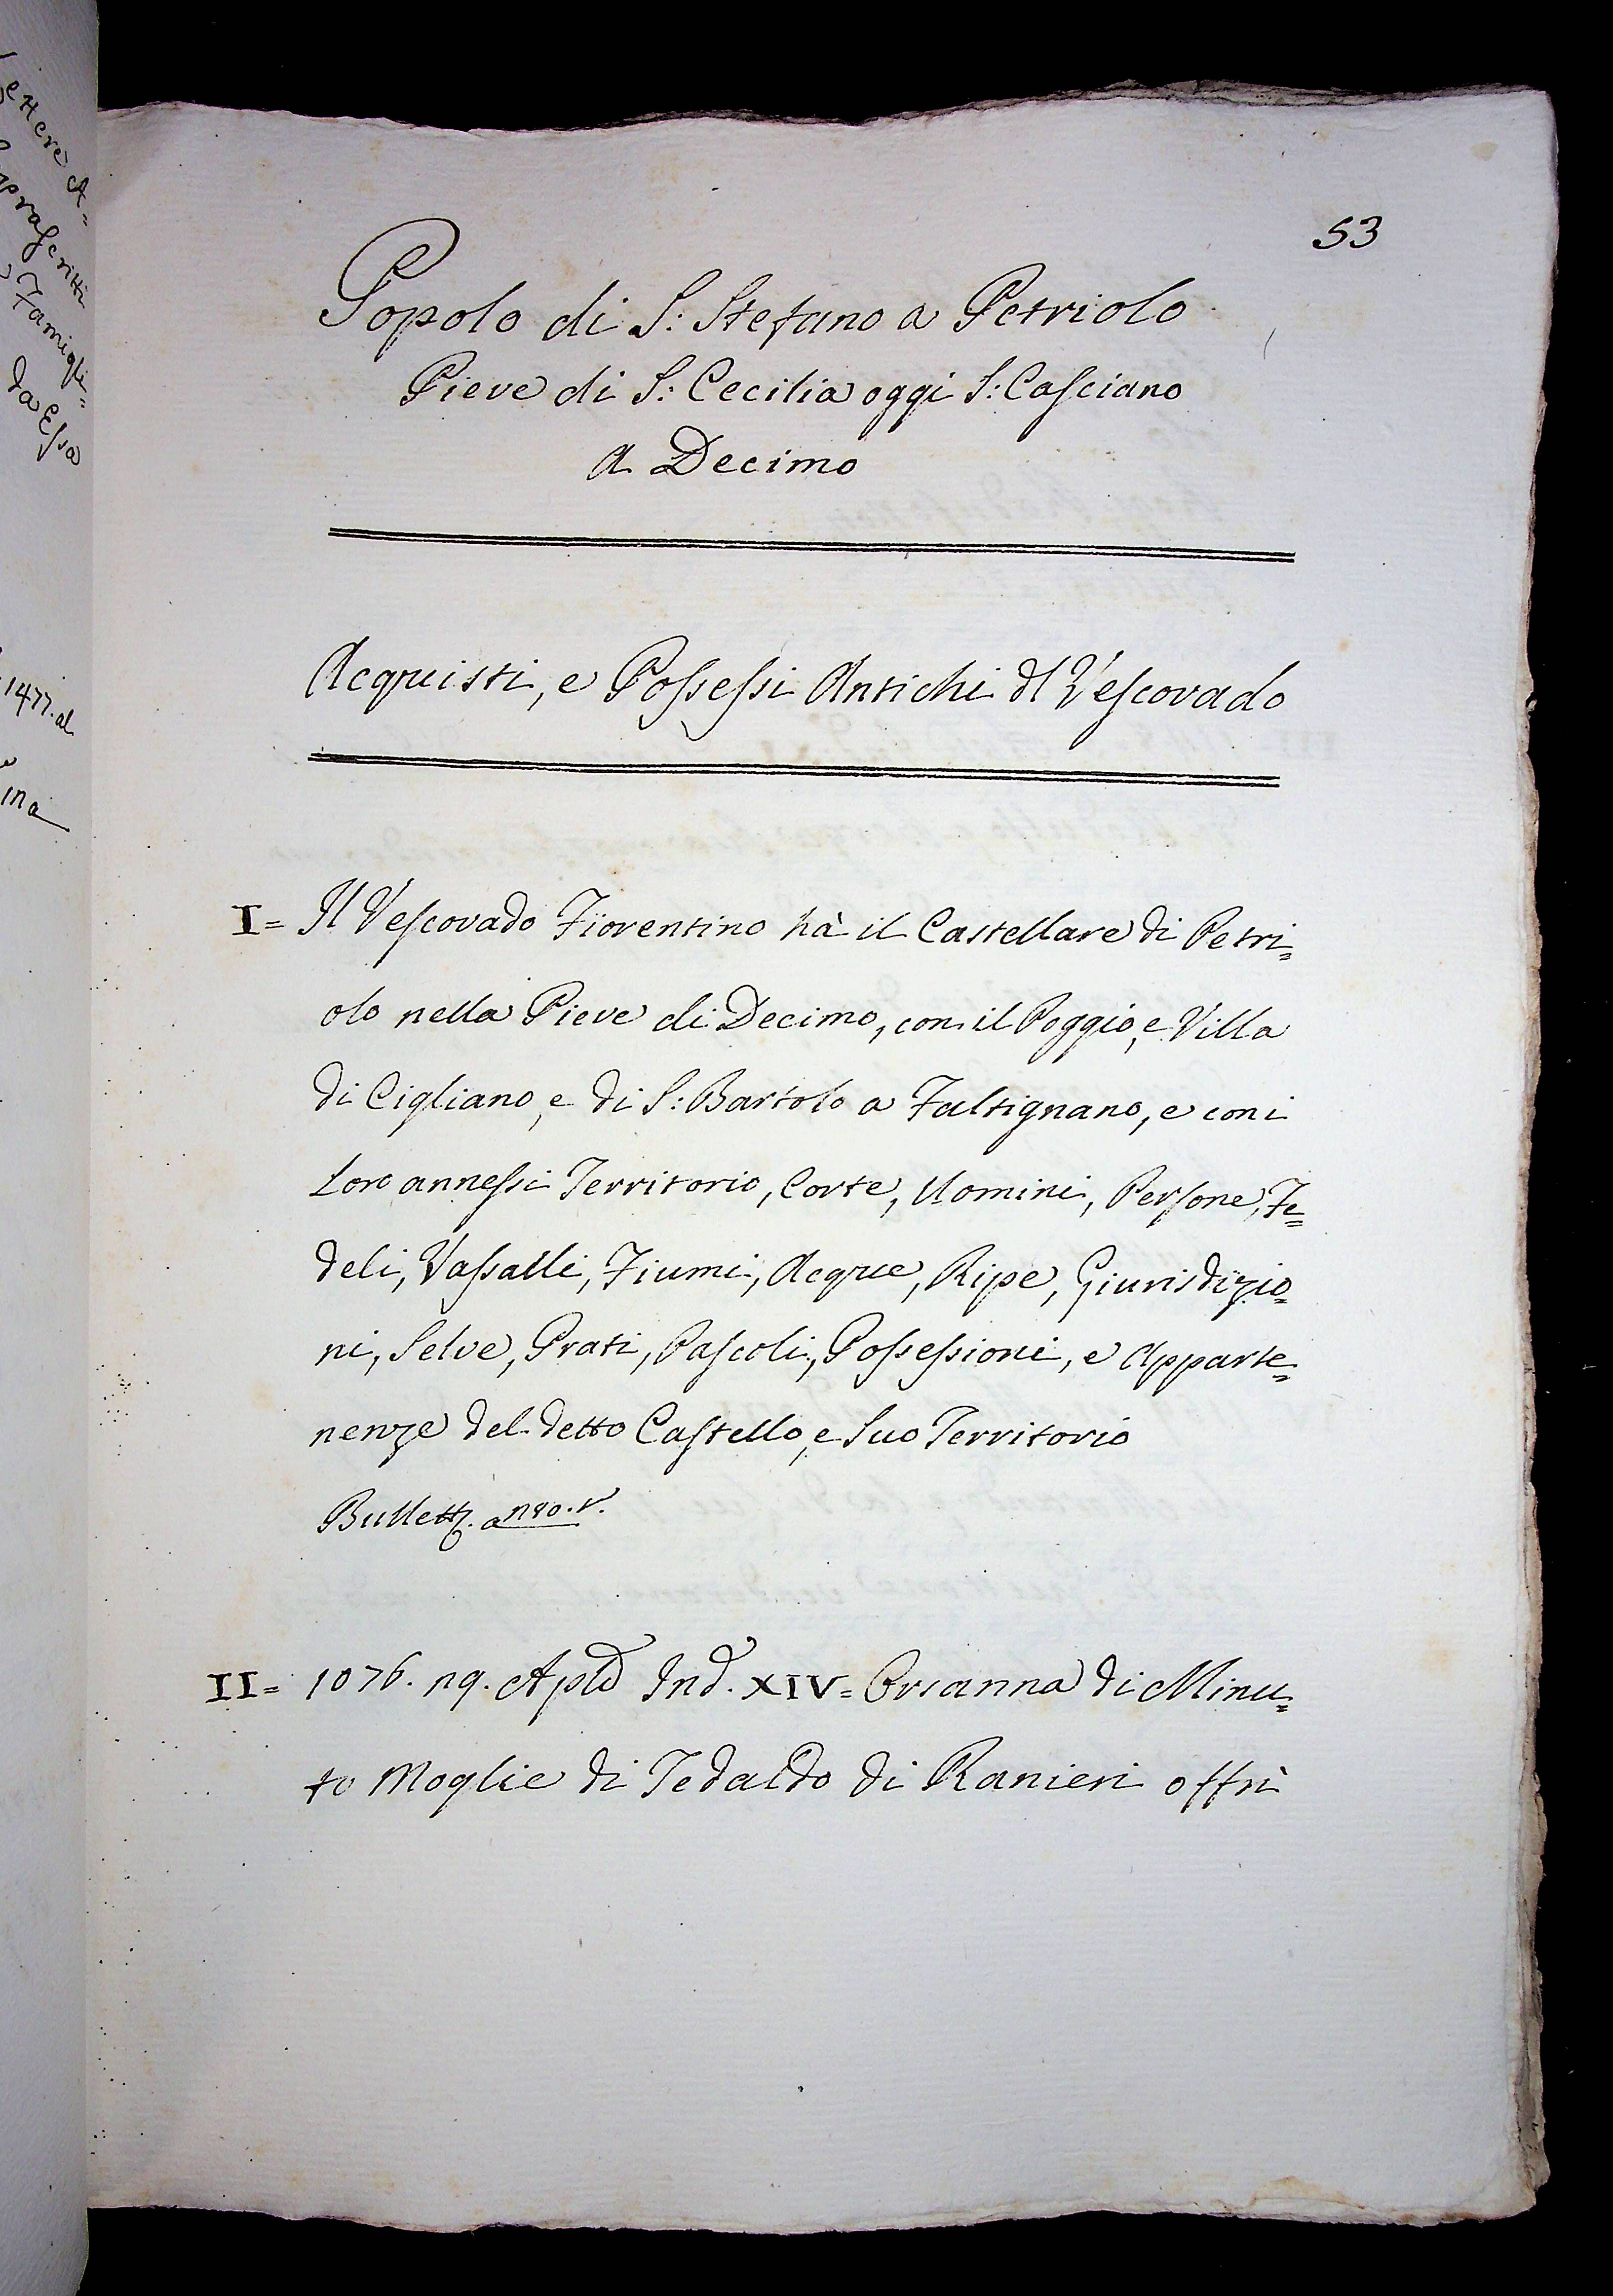 ettere A=
prascritti
Famigli=
da Essa
1477. al
ina
53
Popolo di S: Stefano a Petriolo
Pieve di S: Cecilia oggi S: Casciano
a Decimo
Acquisti, e Possessi Antichi dl Vescovado
I= Il Vescovado Fiorentino hà il Castellare di Petri=
olo nella Pieve di Decimo, con il Poggio, e Villa
di Cigliano, e di S: Bartolo a Faltignano, e con i
Loro annessi Territorio, Corte, Uomini, Persone, Fe=
deli, Vassalli, Fiumi, Acque, Ripe, Giurisdizio=
ni, Selve, Prati, Pascoli, Possessioni, e Apparte=
nenze del detto Castello, e Suo Territorio
Bullett. a
II= 1076. Ind. XIV= Orsanna di Minu=
to Moglie di Tedaldo di Ranieri offrì